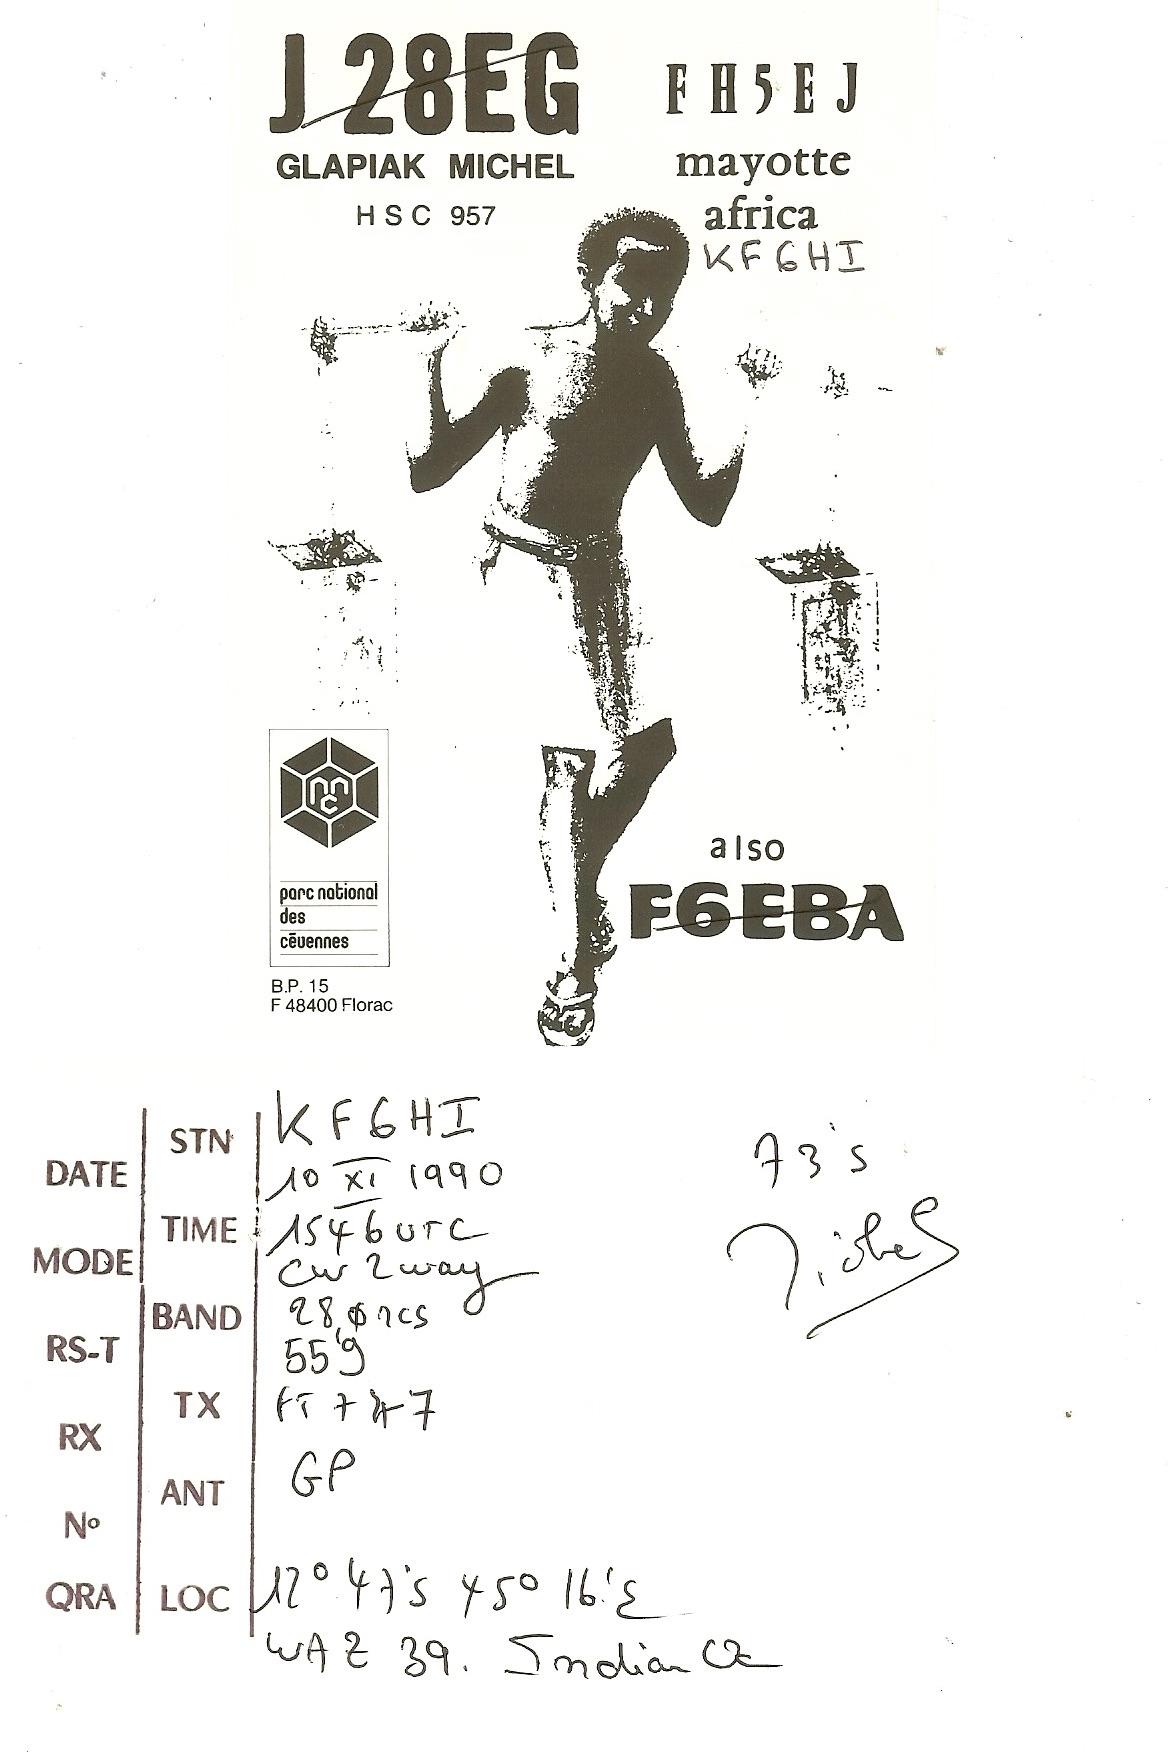 J28EG
FH5EJ
GLAPIAK MICHEL
mayotte
HSC 957
africa
KF6HI
parc national
des
cévennes
B.P. 15
F 48400 Florac
also
F6EBA
STN KF6HI
DATE 10 XI 1990
TIME 1546 UTC
MODE CW 2way
BAND 28,Ø
RS-T 559
TX FT 747
RX
ANT GP
Nº
QRA LOC 12° 47's 45° 16'E
WAZ 39. Indian
73's
Michel